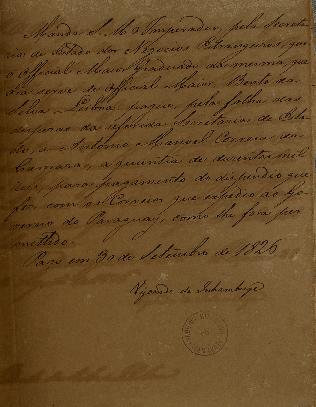 Manda S. M. o Imperador, pela Secreta
ria de Estado dos Negocios Estrangeiros, que
o Official Maior Graduado da mesma que
ora serve de Official Maior, Bento da
Silva Lisboa pague, pela folha das
despezas da referida Secretaria de Esta
do, a Antonio Manoel Correia da
Camara, a quantia de duzentos mil
reis, para pagamento da despeza que
fez com o Correio que expedio ao Go
verno do Paraguay, como lhe fora per
mettido.
Paço em 30 de Setembro de 1826
Visconde de Inhambupe